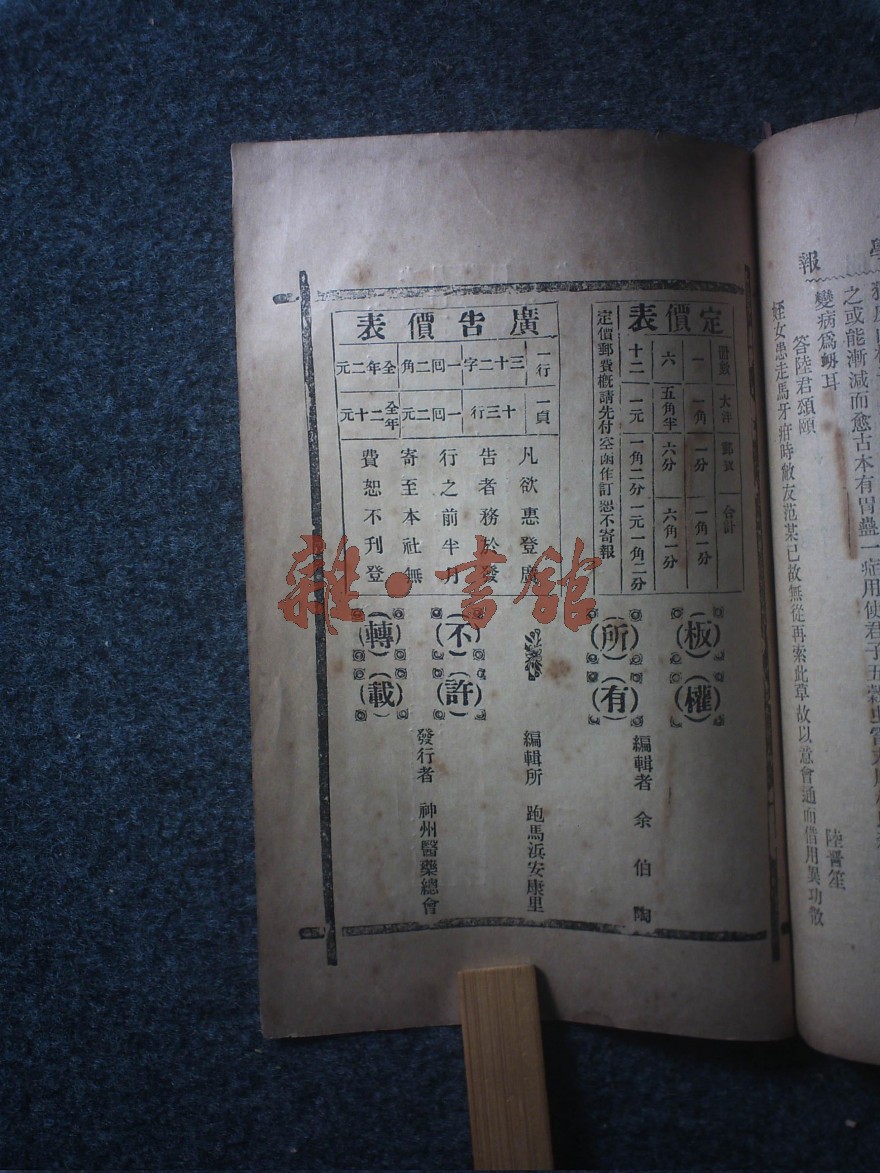 學報
之或能漸減而愈古本有胃蠱一症用使君子五穀虫
變病爲蛔耳
答陸君頌頤
陸晋笙
姪女患走馬牙疳時敝友范某已故無從再索此草故以意會通而借用異功散
定價表
冊數 大洋 郵費 合計
一 一角 一分 一角一分
六 五角半 六分 六角一分
十二 一元 一角二分 一元一角二分
定價郵費概請先付空函作訂恕不寄報
廣告價表
一行 三十二字 一回二角 全年二元
一頁 十三行 一回二元 全年二十元
凡欲惠登廣
告者務於發
行之前半月
寄至本社無
費恕不刊登
雜·書館
(板)(權)
(所)(有)
(不)(許)
(轉)(載)
編輯者 余伯陶
編輯所 跑馬浜安康里
發行者 神州醫藥總會